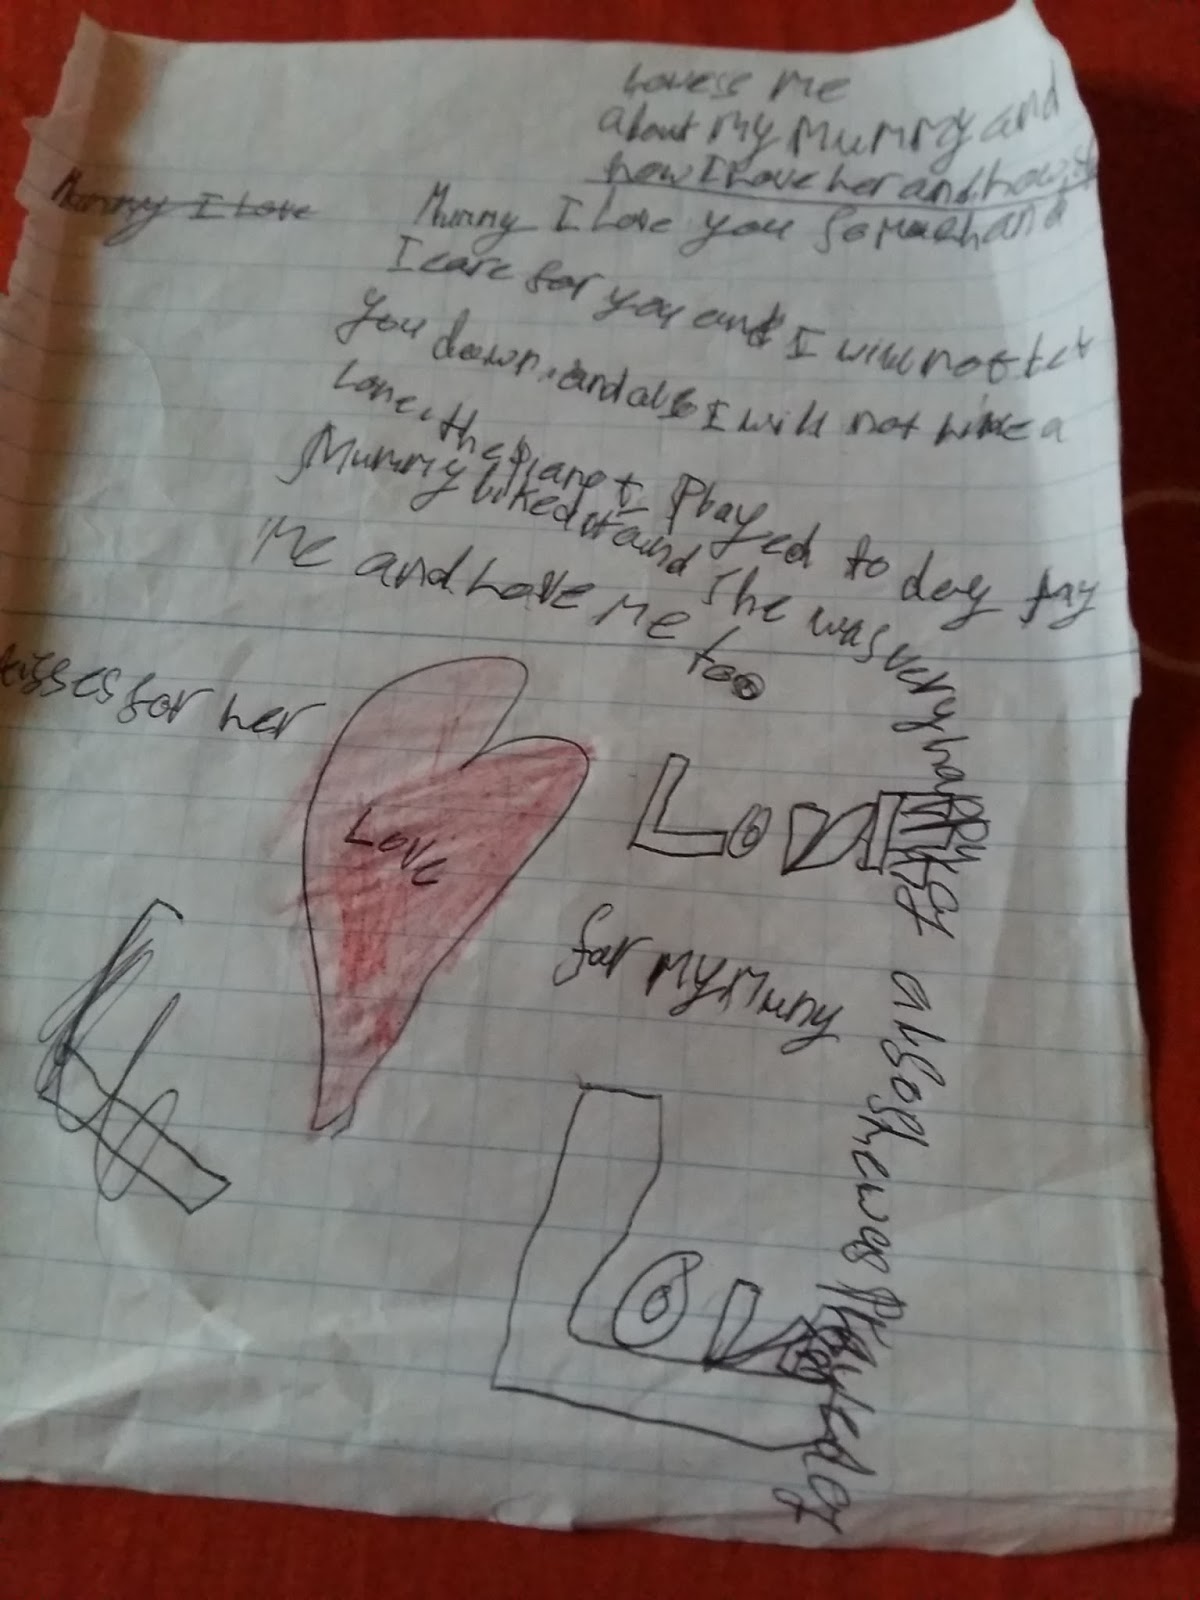 Lovese me
about My Mummy and
how I Love her and how she
Mummy I Love
Mummy I Love you so much and
I care for you and I will not let
you down. and also I will not
Love. the Played to day
Mummy Liked it and She was very happy
Me and Love Me too
kisses for her
Love
Love
for My Muny
also she was of
Love